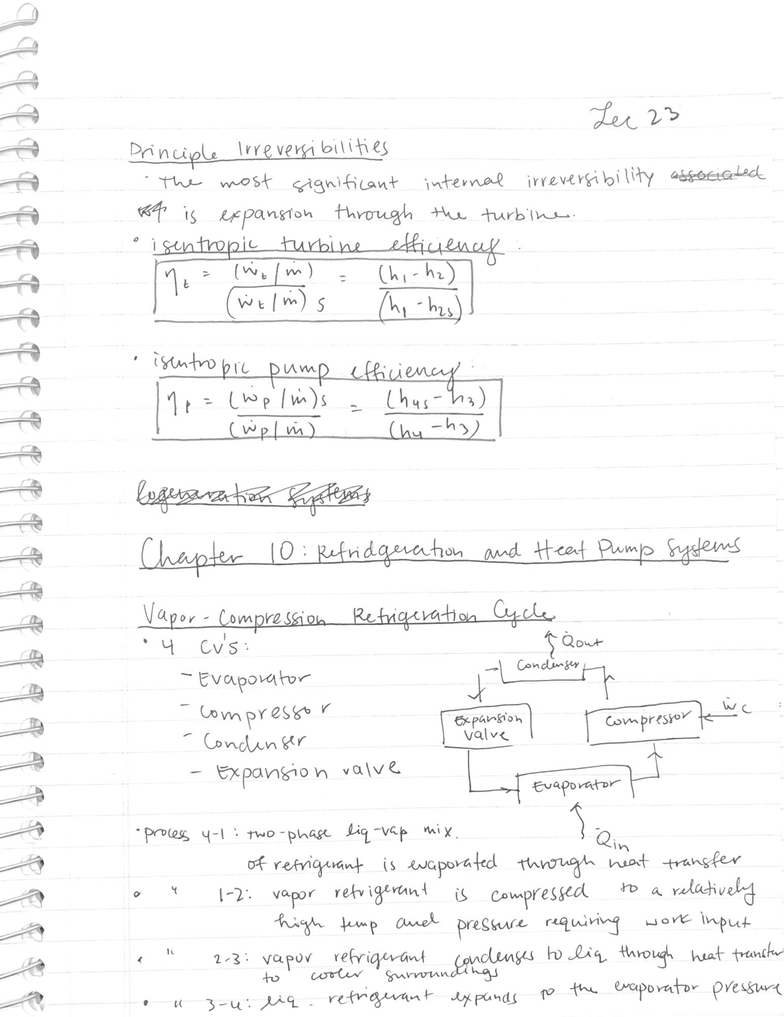 Lec 23
Principle Irreversibilities
· The most significant internal irreversibility associated
is expansion through the turbine.
• isentropic turbine efficiency :
ηt = (ẇt/ṁ) / (ẇt/ṁ)s = (h1-h2) / (h1-h2s)
• isentropic pump efficiency:
ηp = (ẇp/ṁ)s / (ẇp/ṁ) = (h4s-h3) / (h4-h3)
Regeneration Systems
Chapter 10: Refridgeration and Heat Pump Systems
Vapor-Compression Refrigeration Cycle
• 4 CV's:
- Evaporator
- Compressor
- Condenser
- Expansion valve
Q̇out
Condenser
Expansion
valve
Compressor
ẇc
Evaporator
Q̇in
• process 4-1: two-phase liq-vap mix.
of refrigerant is evaporated through heat transfer
• " 1-2: vapor refrigerant is compressed to a relatively
high temp and pressure requiring work input
• " 2-3: vapor refrigerant condenses to liq through heat transfer
to cooler surroundings
• " 3-4: liq. refrigerant expands to the evaporator pressure